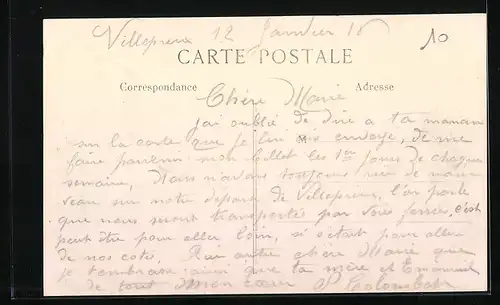 Villepreux 12 Janvier 16
10
CARTE POSTALE
Correspondance
Adresse
Chère Marie
j'ai oublié de dire a ta maman
M
sur la carte que je lui ai envoyé, de me
faire parvenir mon collet les 1er jours de chaque
semaine, Nous n'avons toujours rien de nouveau
sur notre départ de Villepreux, l'on parle
que nous serons transportés par voies ferrées, c'est
peut être pour aller loin, si s'était pour aller
de nos coté. Rien autre chère Marie que
je t'embrasse ainsi que ta mère et Emmanuel
de tout mon cœur